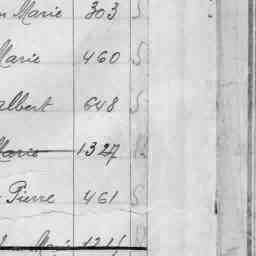 Marie 303 S
Marie 460 S
albert 648 S
Marie 1327
Pierre 461 S
Marie